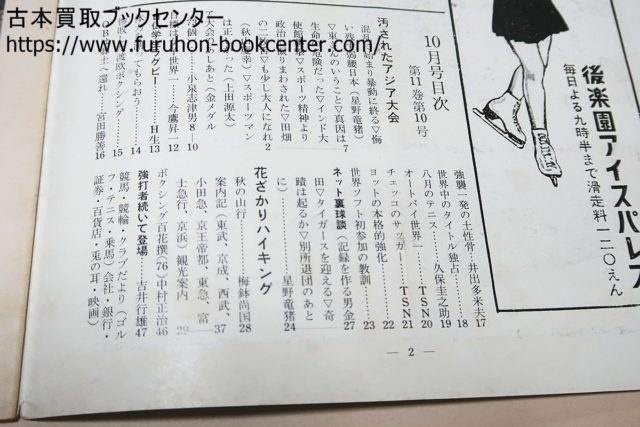 古本買取ブックセンター
https://www.furuhon-bookcenter.com/
後楽園アイスパレス
毎日よる九時半まで滑走料一二〇えん
10月号目次
第11巻第10号
汚されたアジア大会
混乱に始まり暴動に終る▽侮
い残る弱腰日本（星野竜猪）
▽東さんのいうこと▽真因は7
生命も危険だった▽インド大
使館襲撃▽スポーツ精神より
政治に振りまわされた▽田畑
の二枚舌▽も少し大人になれ2
（秋山慶幸）▽スポーツマン
は正しかった（上田源太）
大会こぼしあと（金メダル
79個）……小泉志津男8—10
世界一…今鷹昇一12
ラグビー……H生13
てもらおう……14
渡欧ボクシング……15
士へ還れ…宮田勝善16
強襲一発の土性骨…井出多米夫17
世界中のタイトル独占……18
八月のテニス……久保圭之助19
オートバイ世界一……TSN20
チェッコのサッカー……TSN21
ヨットの本格的強化……22
世界ソフト初参加の教訓……23
ネット裏球談（記録を作る男金27
田▽タイガースを迎える▽奇
蹟は起るか▽別所退団のあと
に）……星野竜猪24
花ざかりハイキング
秋の山行……梅鉢尚国28
案内記（東武、京成、西武、37
小田急、京王帝都、東急、富
士急行、京浜）観光案内……29
ボクシング百花撰(76)中村政治46
強打者続いて登場……吉井行雄47
競馬・競輪・クラブだより（ゴル
フ・テニス・乗馬）会社・銀行・
証券・百貨店・兎の耳・映画）
— 2 —